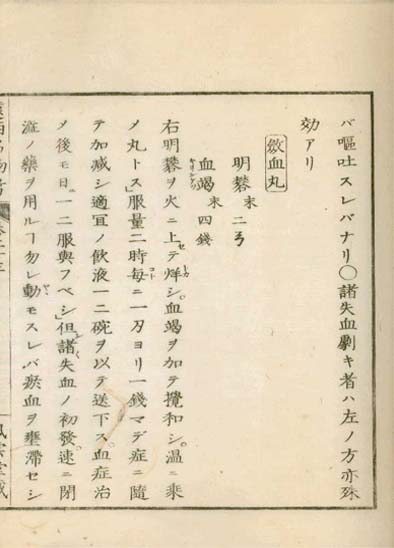 バ嘔吐スレバナリ〇諸失血劇キ者ハ左ノ方亦殊
効アリ
斂血丸
明礬末二
血竭末四錢
右明礬ヲ火ニ上セテ烊シ。血竭ヲ加テ攪和シ。温ニ乗
メ丸トス」服量二時每ニ一刃ヨリ一錢マデ症ニ隨
テ加减シ適宜ノ飲液一二碗ヲ以テ送下ス。血症治
メ後モ日ニ一二服與フベシ」但諸失血ノ初發速ニ閉
澁ノ藥ヲ用ルヿ勿レ動モスレバ瘀血ヲ壅滯セシ